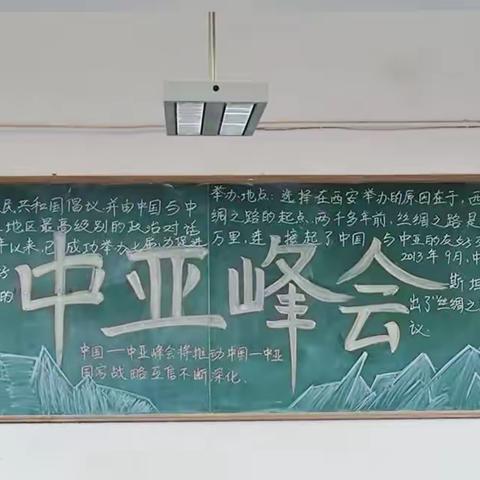 民共和国倡议并由中国与中
地区最高级别的政治对话
以来,已成功举办
的
举办地点:选择在西安举办的原因在于,西
绸之路的起点、两千多年前,丝绸之路是
万里,连接起了中国与中亚的友好
2013年9月,中
斯坦
出了"丝绸之
议。
中亚峰会
中国—中亚峰会将推动中国—中亚
国家战略互信不断深化.